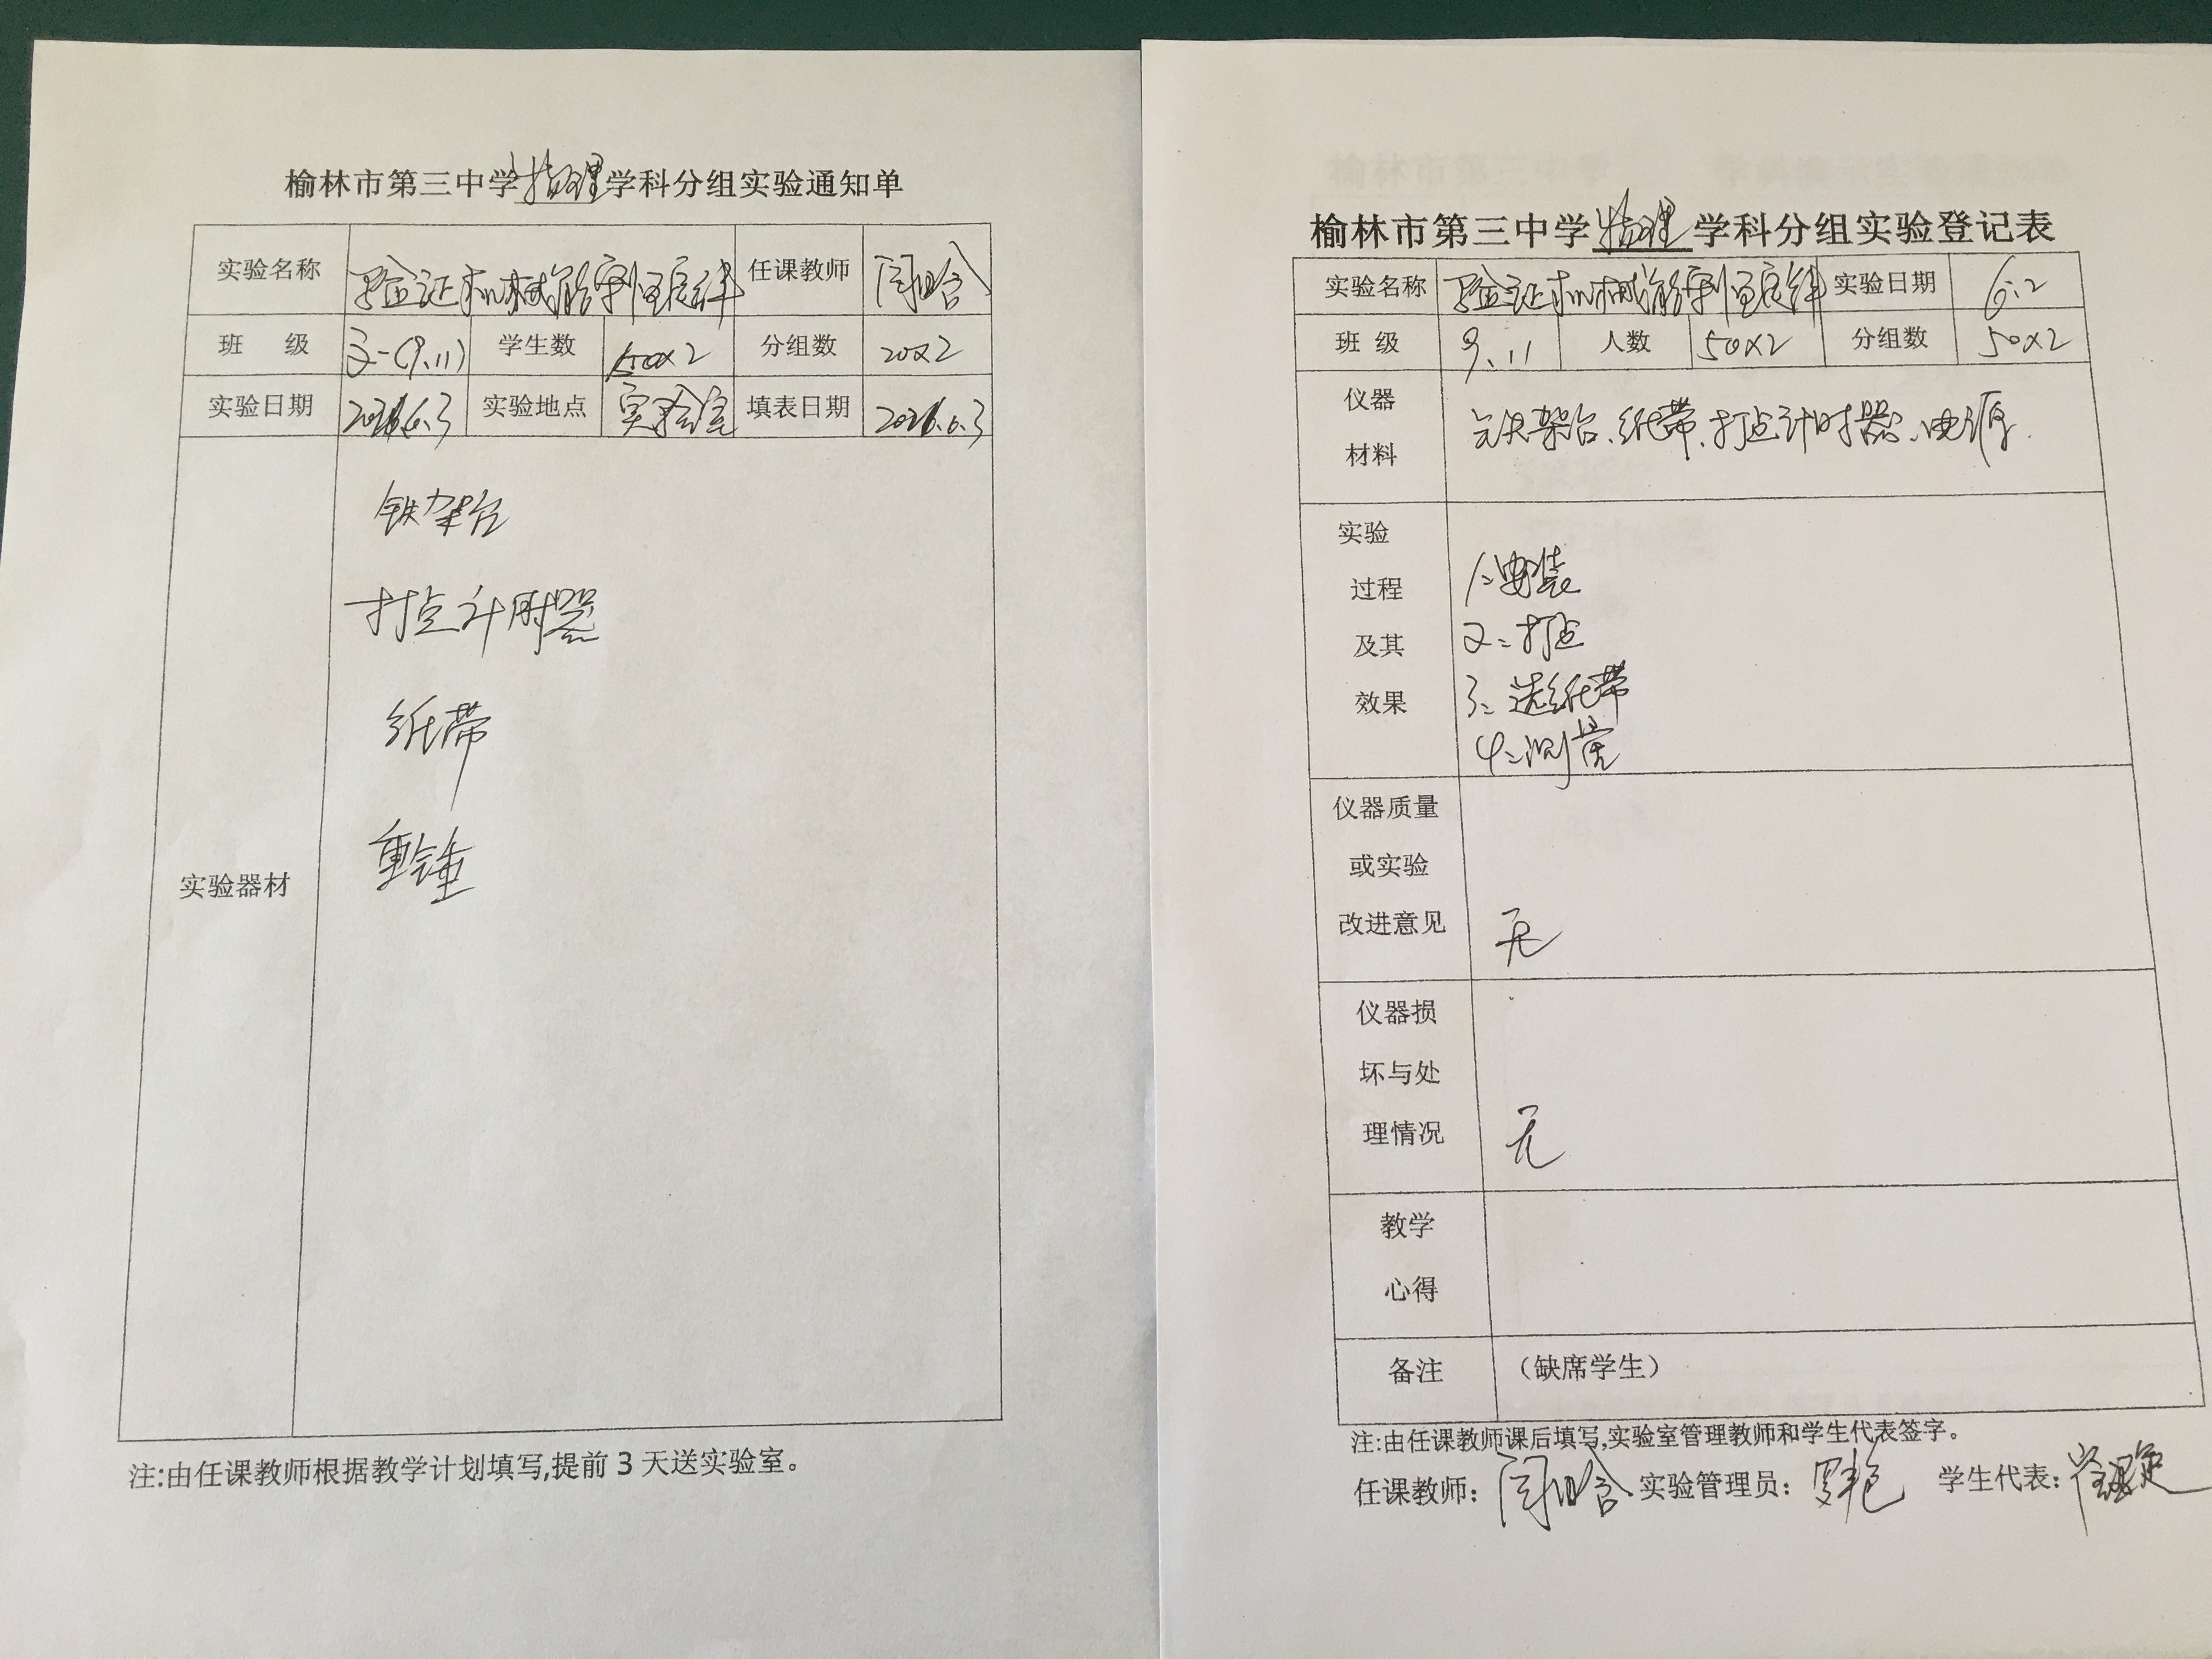 榆林市第三中学物理学科分组实验通知单
实验名称 验证机械能守恒定律 任课教师
班 级 (9.11) 学生数 50×2 分组数 20×2
实验日期 实验地点 实验室 填表日期
实验器材
铁架台
打点计时器
纸带
重锤
注:由任课教师根据教学计划填写,提前3天送实验室。
榆林市第三中学物理学科分组实验登记表
实验名称 验证机械能守恒定律 实验日期 6.2
班 级 9.11 人数 50×2 分组数 50×2
仪器
材料
铁架台、纸带、打点计时器、电源.
实验
过程
及其
效果
1、安装
2、打点
3、选纸带
4、测量
仪器质量
或实验
改进意见 无
仪器损
坏与处
理情况 无
教学
心得
备注 （缺席学生）
注:由任课教师课后填写,实验室管理教师和学生代表签字。
任课教师： 实验管理员： 学生代表：